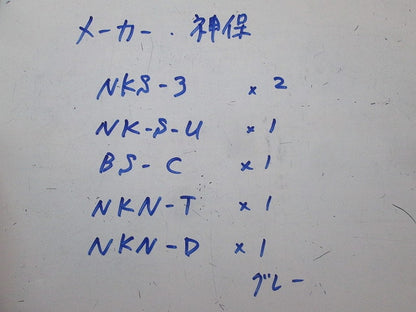 メーカー . 神保
NKS-3 × 2
NK-S-U × 1
BS-C × 1
NKN-T × 1
NKN-D × 1
グレー